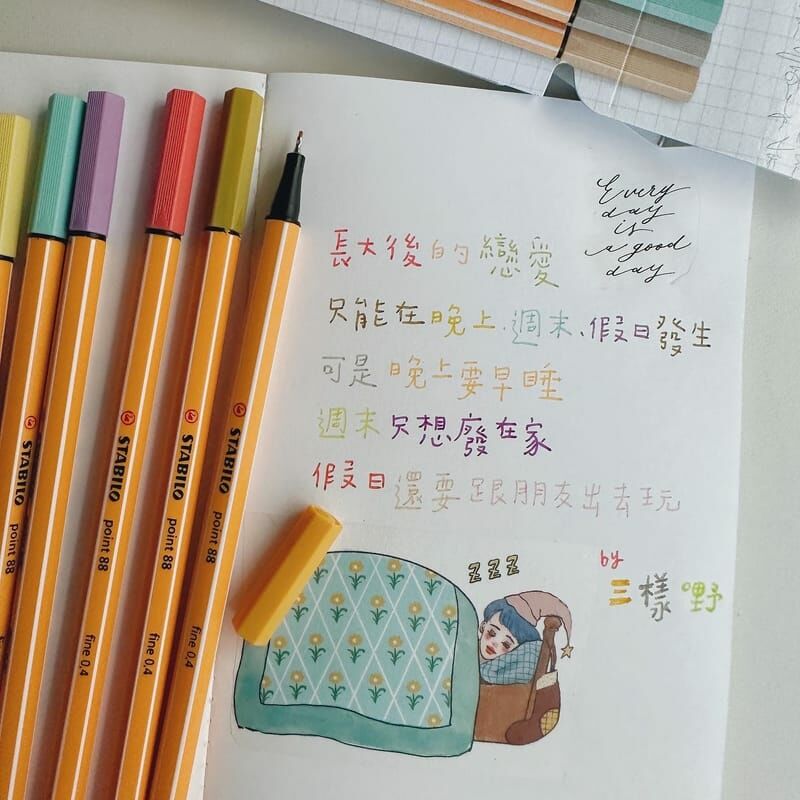 Every
day
is
a good
day
長大後的戀愛
只能在晚上.週末、假日發生
可是晚上要早睡
週末只想廢在家
假日還要跟朋友出去玩
by
三樣嘢
z z z
STABILO point 88
STABILO point 88 fine 0,4
STABILO point 88 fine 0,4
STABILO point 88 fine 0,4
point 88